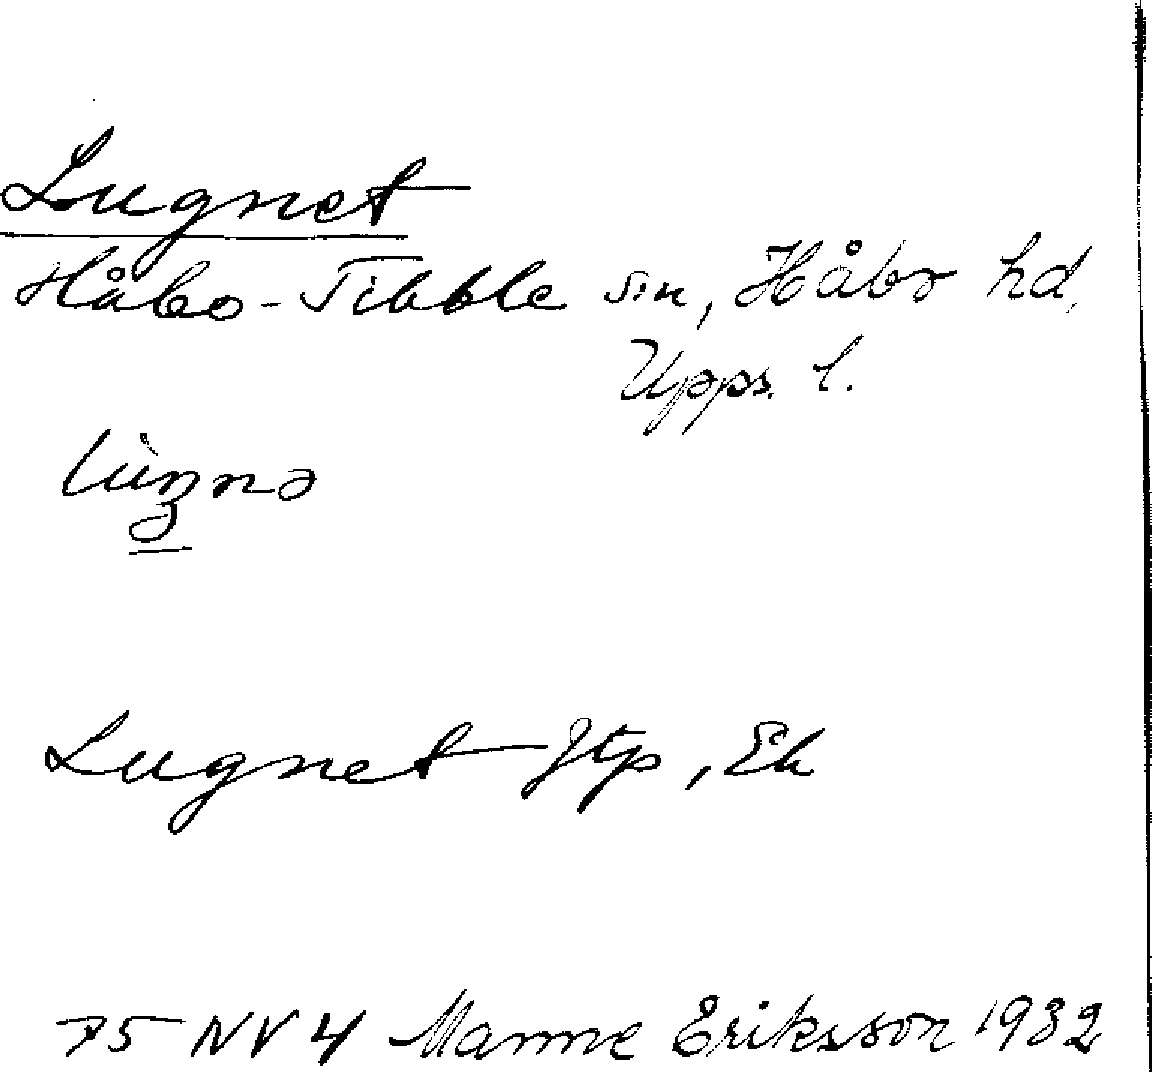 Lugnet
Håbo-Tibble sn, Håbo hd,
Upps. l.
lùŋnə
Lugnet Jtp, Ek
75 NV 4 Manne Eriksson 1932